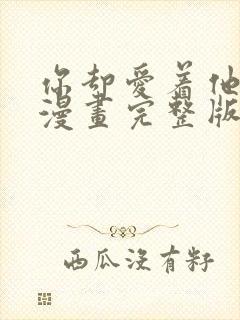 你却愛着他
漫畫完整版
西瓜沒有籽